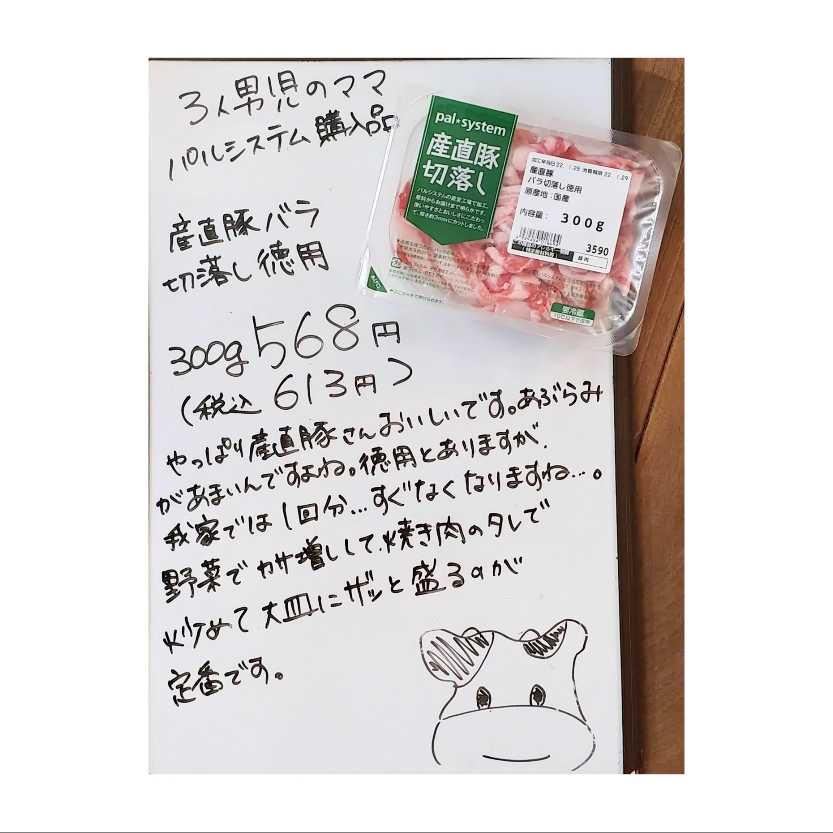 3人男児のママ
パルシステム購入品
産直豚バラ
切落し徳用
300g 568円
(税込 613円)
やっぱり産直豚さんおいしいです。あぶらみ
があまいんですよね。徳用とありますが、
我家では1回分…すぐなくなりますね…。
野菜でカサ増しして、焼き肉のタレで
炒めて大皿にザッと盛るのが
定番です。
pal★system
産直豚
切落し
パルシステムの産直工場で加工。
産直豚
バラ切落し徳用
原産地：国産
内容量： 300g
3590
要冷蔵